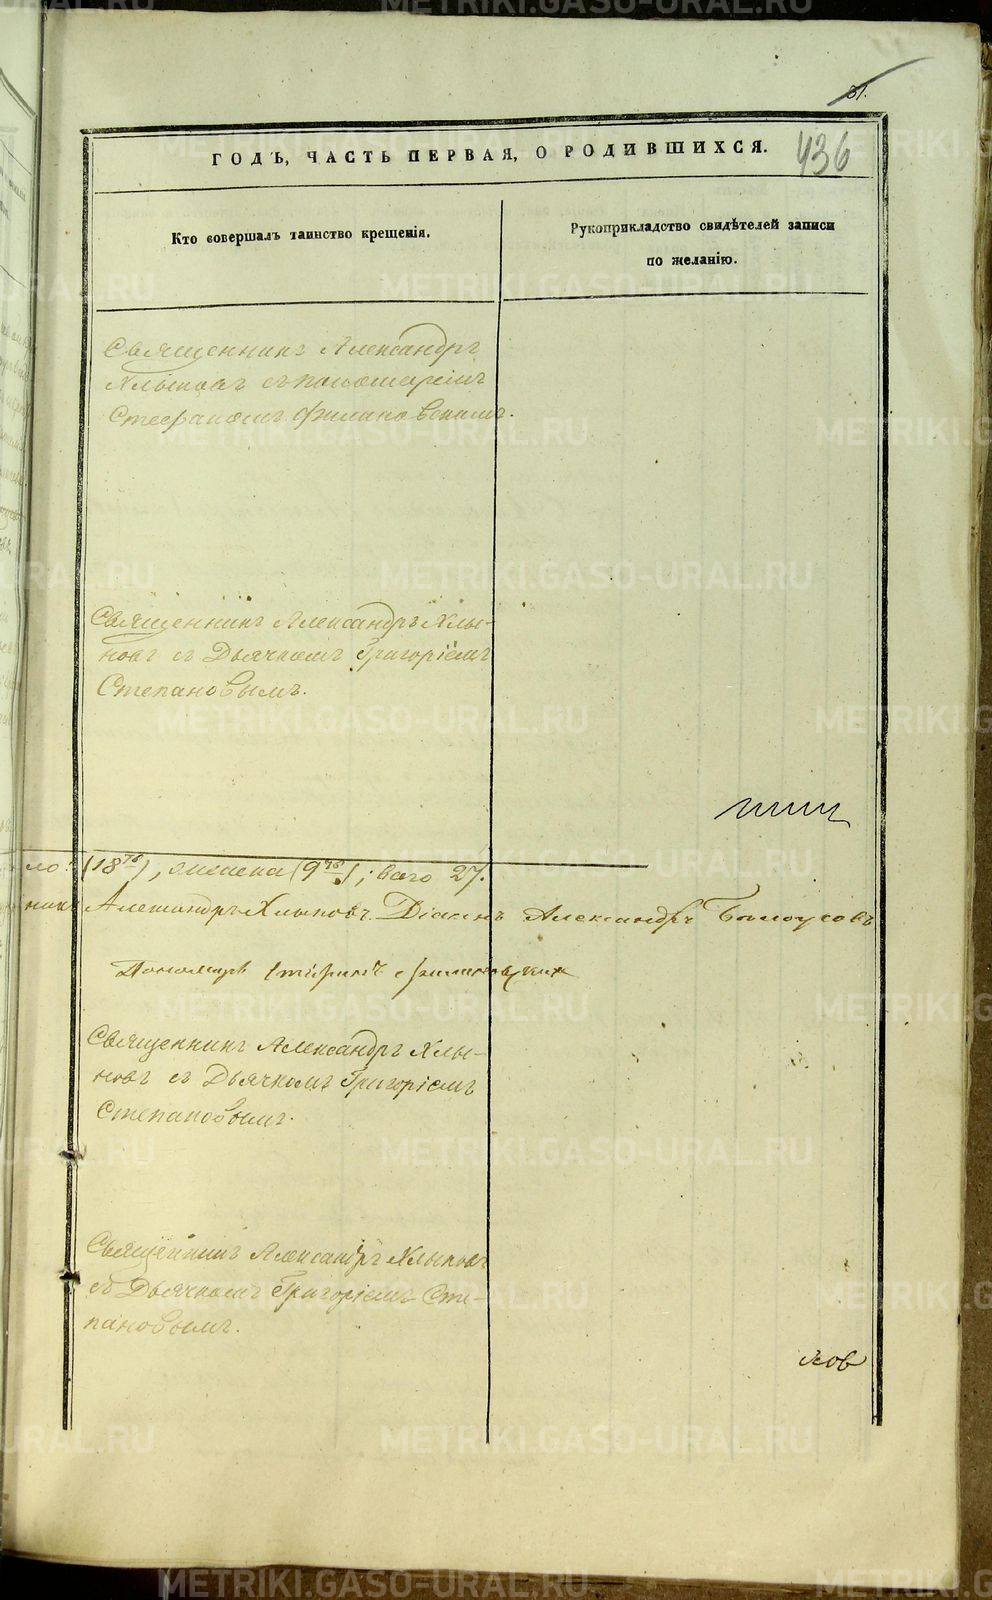 31.
436
ГОДЪ, ЧАСТЬ ПЕРВАЯ, О РОДИВШИХСЯ.
Кто совершалъ таинство крещенія.
Рукоприкладство свидѣтелей записи
по желанію.
Священникъ Александръ
Хлыновъ съ пономаремъ
Стефаномъ Филановскимъ.
Священникъ Александръ Хлы-
новъ съ Дьячкомъ Григоріемъ
Степановымъ.
(18), женска (9); всего 27.
никъ Александръ Хлыновъ. Діаконъ Александръ Бѣлоусовъ
Пономарь Стефанъ Филановскій
Священникъ Александръ Хлы-
новъ съ Дьячкомъ Григоріемъ
Степановымъ.
Священникъ Александръ Хлыновъ
съ Дьячкомъ Григоріемъ Сте-
пановымъ.
ков
METRIKI.GASO-URAL.RU